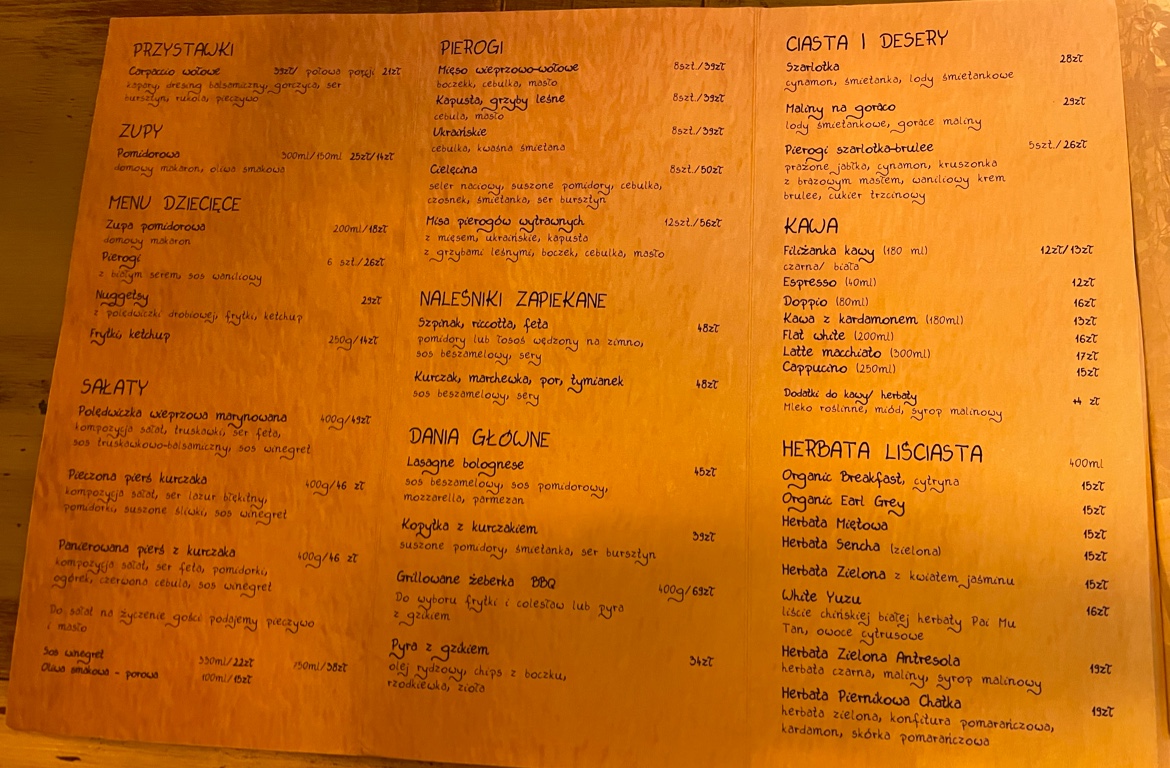 PRZYSTAWKI
Carpaccio wołowe 39zł/ połowa porcji 21zł
kapary, dresing balsamiczny, gorczyca, ser
bursztyn, rukola, pieczywo
ZUPY
Pomidorowa 300ml/150ml 25zł/14zł
domowy makaron, oliwa smakowa
MENU DZIECIĘCE
Zupa pomidorowa 200ml/18zł
domowy makaron
Pierogi 6 szt./26zł
z białym serem, sos waniliowy
Nuggetsy 29zł
z polędwiczki drobiowej, frytki, ketchup
Frytki, ketchup 250g/14zł
SAŁATY
Polędwiczka wieprzowa marynowana 400g/49zł
kompozycja sałat, truskawki, ser feta,
sos truskawkowo-balsamiczny, sos winegret
Pieczona pierś kurczaka 400g/46 zł
kompozycja sałat, ser lazur błękitny,
pomidorki, suszone śliwki, sos winegret
Panierowana pierś z kurczaka 400g/46 zł
kompozycja sałat, ser feta, pomidorki,
ogórek, czerwona cebula, sos winegret
Do sałat na życzenie gości podajemy pieczywo
i masło
Sos winegret 330ml/22zł 750ml/38zł
Oliwa smakowa - porowa 100ml/15zł
PIEROGI
Mięso wieprzowo-wołowe 8szt./39zł
boczek, cebulka, masło
Kapusta, grzyby leśne 8szt./39zł
cebula, masło
Ukraińskie 8szt./39zł
cebulka, kwaśna śmietana
Cielęcina 8szt./50zł
seler naciowy, suszone pomidory, cebulka,
czosnek, śmietanka, ser bursztyn
Misa pierogów wytrawnych 12szt./56zł
z mięsem, ukraińskie, kapusta
z grzybami leśnymi, boczek, cebulka, masło
NALEŚNIKI ZAPIEKANE
Szpinak, riccotta, feta 48zł
pomidory lub łosoś wędzony na zimno,
sos beszamelowy, sery
Kurczak, marchewka, por, tymianek 48zł
sos beszamelowy, sery
DANIA GŁÓWNE
Lasagne bolognese 45zł
sos beszamelowy, sos pomidorowy,
mozzarella, parmezan
Kopytka z kurczakiem 39zł
suszone pomidory, śmietanka, ser bursztyn
Grillowane żeberka BBQ 400g/69zł
Do wyboru frytki i colesław lub pyra
z gzikiem
Pyra z gzikiem 34zł
olej rydzowy, chips z boczku,
rzodkiewka, zioła
CIASTA I DESERY
Szarlotka 28zł
cynamon, śmietanka, lody śmietankowe
Maliny na gorąco 29zł
lody śmietankowe, gorące maliny
Pierogi szarlotka-brulee 5szt./26zł
prażone jabłka, cynamon, kruszonka
z brązowym masłem, waniliowy krem
brulee, cukier trzcinowy
KAWA
Filiżanka kawy (180 ml) 12zł/13zł
czarna/ biała
Espresso (40ml) 12zł
Doppio (80ml) 16zł
Kawa z kardamonem (180ml) 13zł
Flat white (200ml) 16zł
Latte macchiato (300ml) 17zł
Cappucino (250ml) 15zł
Dodatki do kawy/ herbaty +4 zł
Mleko roślinne, miód, syrop malinowy
HERBATA LIŚCIASTA 400ml
Organic Breakfast, cytryna 15zł
Organic Earl Grey 15zł
Herbata Miętowa 15zł
Herbata Sencha (zielona) 15zł
Herbata Zielona z kwiatem jaśminu 15zł
White Yuzu 16zł
liście chińskiej białej herbaty Pai Mu
Tan, owoce cytrusowe
Herbata Zielona Antresola 19zł
herbata czarna, maliny, syrop malinowy
Herbata Piernikowa Chatka 19zł
herbata zielona, konfitura pomarańczowa,
kardamon, skórka pomarańczowa